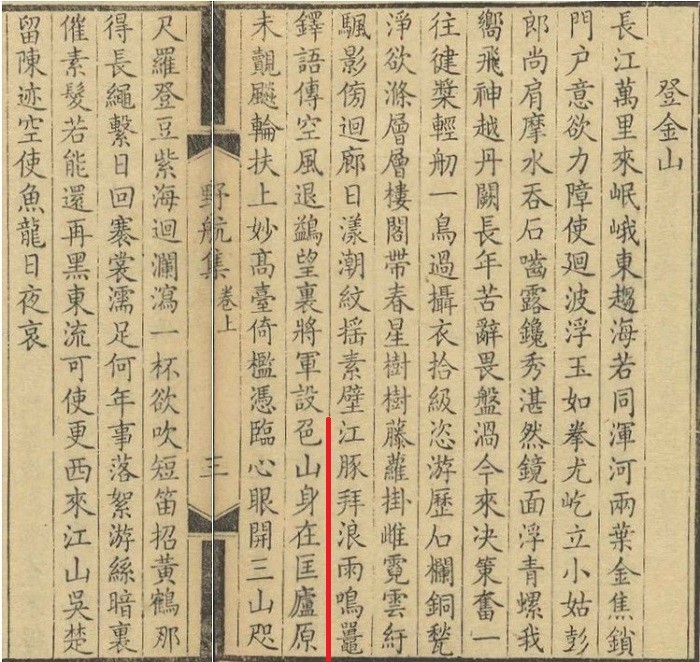 登金山
長江萬里來岷峨東趨海若同渾河兩葉金焦鎖
門户意欲力障使廻波浮玉如拳尤屹立小姑彭
郎尚肩摩水吞石嚙露鑱秀湛然鏡面浮青螺我
嚮飛神越丹闕長年苦辭畏盤渦今來決策奮一
往健槳輕舠一鳥過攝衣拾級恣游歷石欄銅甃
淨欲滌層層樓閣帶春星樹樹藤蘿掛雌霓雲紆
颿影傍迴廊日漾潮紋搖素壁江豚拜浪雨鳴鼉
鐸語傳空風退鷁望裏將軍設色山身在匡廬原
未覿飈輪扶上妙高臺倚檻憑臨心眼開三山咫
野航集 卷上 三
尺羅登豆紫海迴瀾瀉一杯欲吹短笛招黃鶴那
得長繩繫日回褰裳濡足何年事落絮游絲暗裏
催素髮若能還再黑東流可使更西來江山吳楚
留陳迹空使魚龍日夜哀